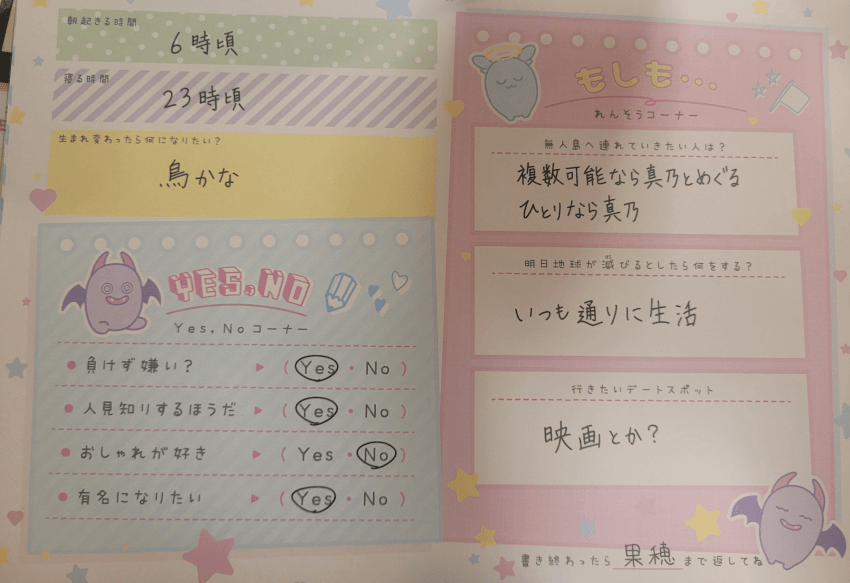 朝起きる時間
6時頃
寝る時間
23時頃
生まれ変わったら何になりたい?
鳥かな
YES,NO
Yes, Noコーナー
負けず嫌い? (Yes・No)
人見知りするほうだ (Yes・No)
おしゃれが好き (Yes・No)
有名になりたい (Yes・No)
もしも・・・
れんそうコーナー
無人島へ連れていきたい人は?
複数可能なら真乃とめぐる
ひとりなら真乃
明日地球が滅びるとしたら何をする?
いつも通りに生活
行きたいデートスポット
映画とか?
書き終わったら 果穂 まで返してね